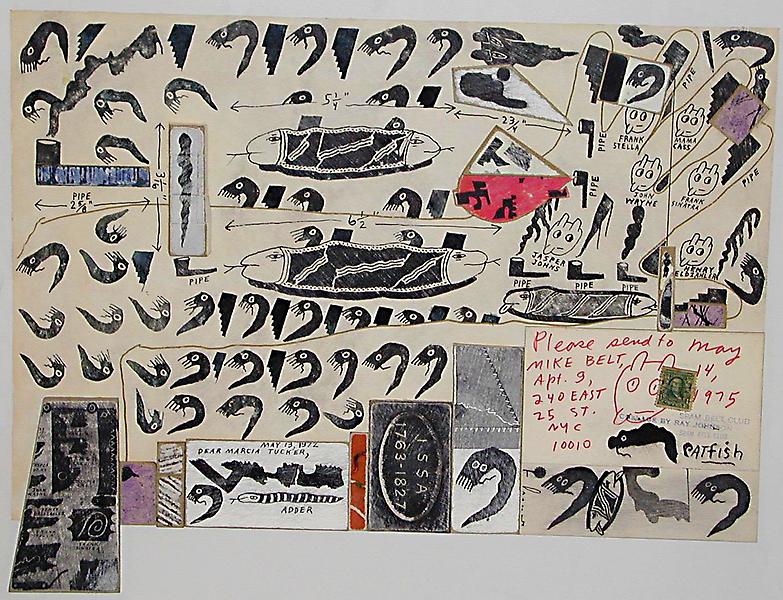 5 1/4"
2 3/4
PIPE
PIPE
FRANK
STELLA
MAMA
CASS
PIPE
PIPE
JOHN
WAYNE
FRANK
SINATRA
PIPE
2 5/8"
6 1/2"
JASPER
JOHNS
HENRY
PIPE
PIPE
PIPE
PIPE
Please send to May
14,
1975
MIKE BELT,
Apt. 9,
240 EAST
25 ST.
NYC
10010
SPAM BELT CLUB
COLLAGE BY RAY JOHNSON
PATFISH
MAY 13, 1972
DEAR MARCIA TUCKER,
ADDER
J.SSA
1763-1827